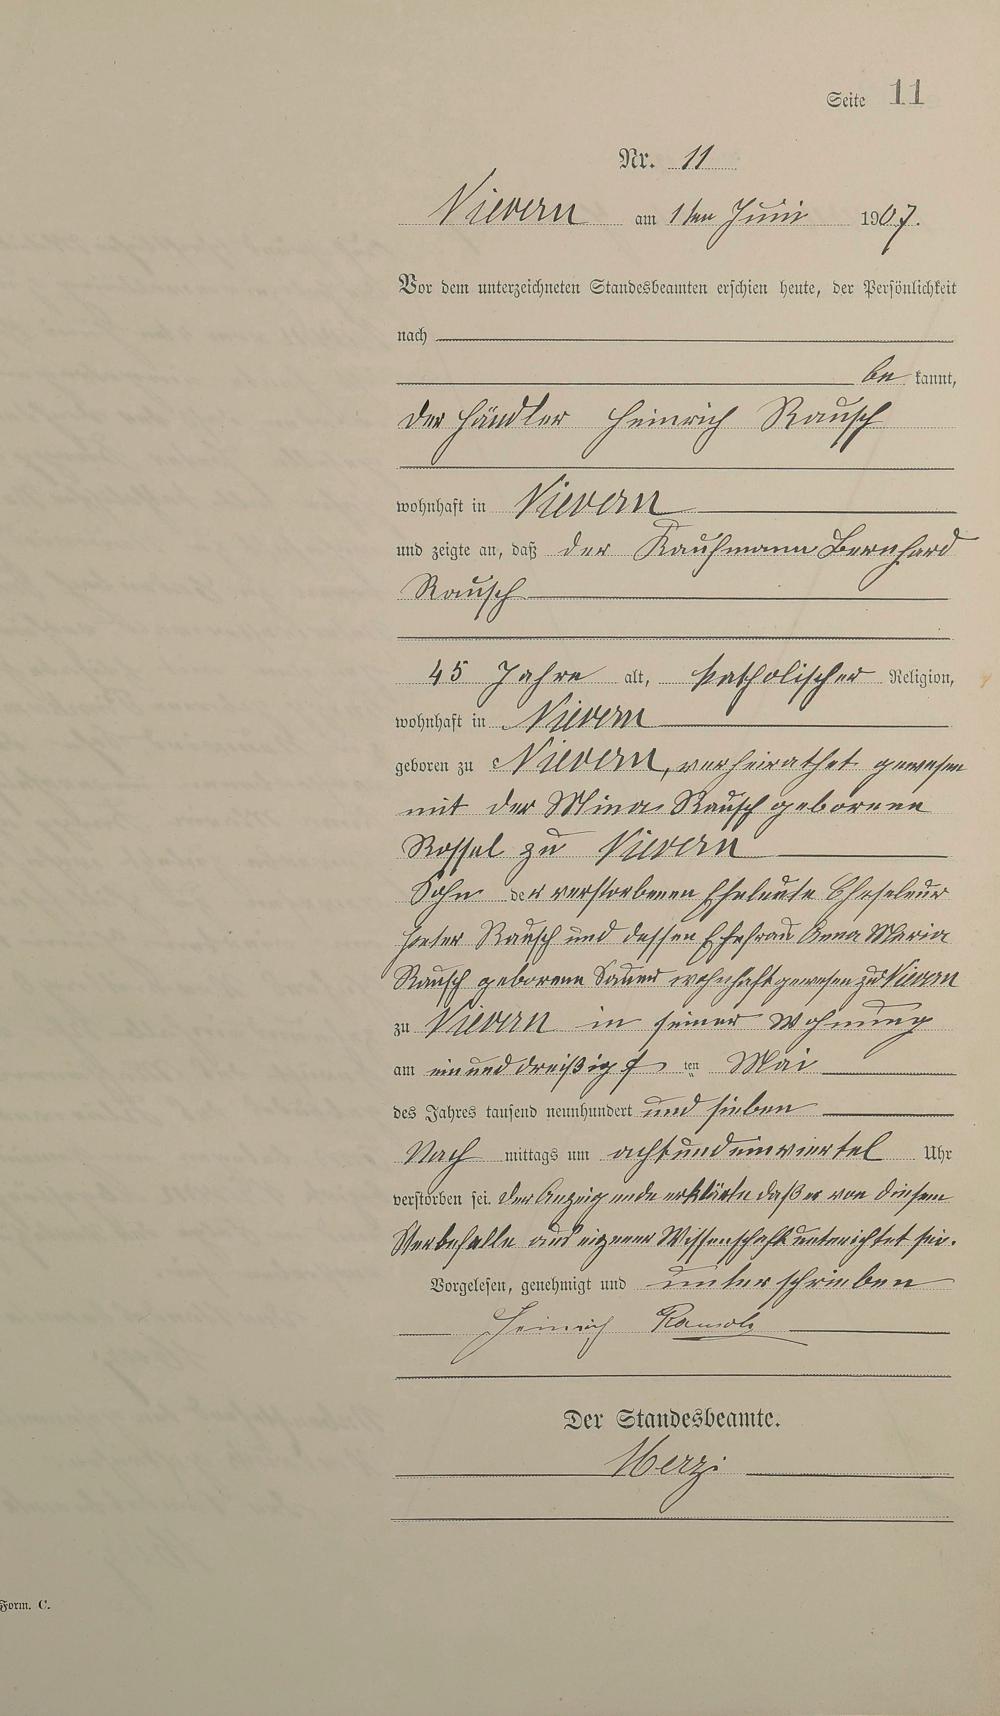 Seite 11
Nr. 11
Nievern am 1ten Juni 1907.
Vor dem unterzeichneten Standesbeamten erschien heute, der Persönlichkeit
nach
be kannt,
der Händler Heinrich Rausch
wohnhaft in Nievern
und zeigte an, daß der Kaufmann Bernhard
Rausch
45 Jahre alt, katholischer Religion,
wohnhaft in Nievern
geboren zu Nievern, verheirathet gewesen
mit der Mina Rausch geborenen
Rossel zu Nievern
Sohn der verstorbenen Eheleute
Peter Rausch und dessen Ehefrau Anna Maria
Rausch geborene Sauer wohnhaft gewesen zu Nievern
zu Nievern in seiner Wohnung
am ein und dreißigs ten Mai
des Jahres tausend neunhundert und sieben
Nach mittags um acht und einviertel Uhr
verstorben sei. Der Anzeigende erklärte daß er von diesem
Sterbefalle aus eigener Wissenschaft unterichtet sei.
Vorgelesen, genehmigt und unterschrieben
Heinrich Rausch
Der Standesbeamte.
Form. C.